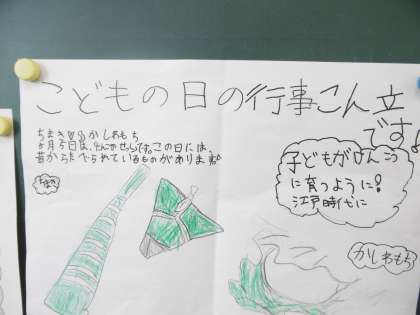 こどもの日の行事こん立
です。
ちまき
かしわもち
5月5日は、
せんです。この日には、
昔から
られているものがあります。
子どもがけんこう
に育つように!
江戸時代に
ちまき
かしわもち